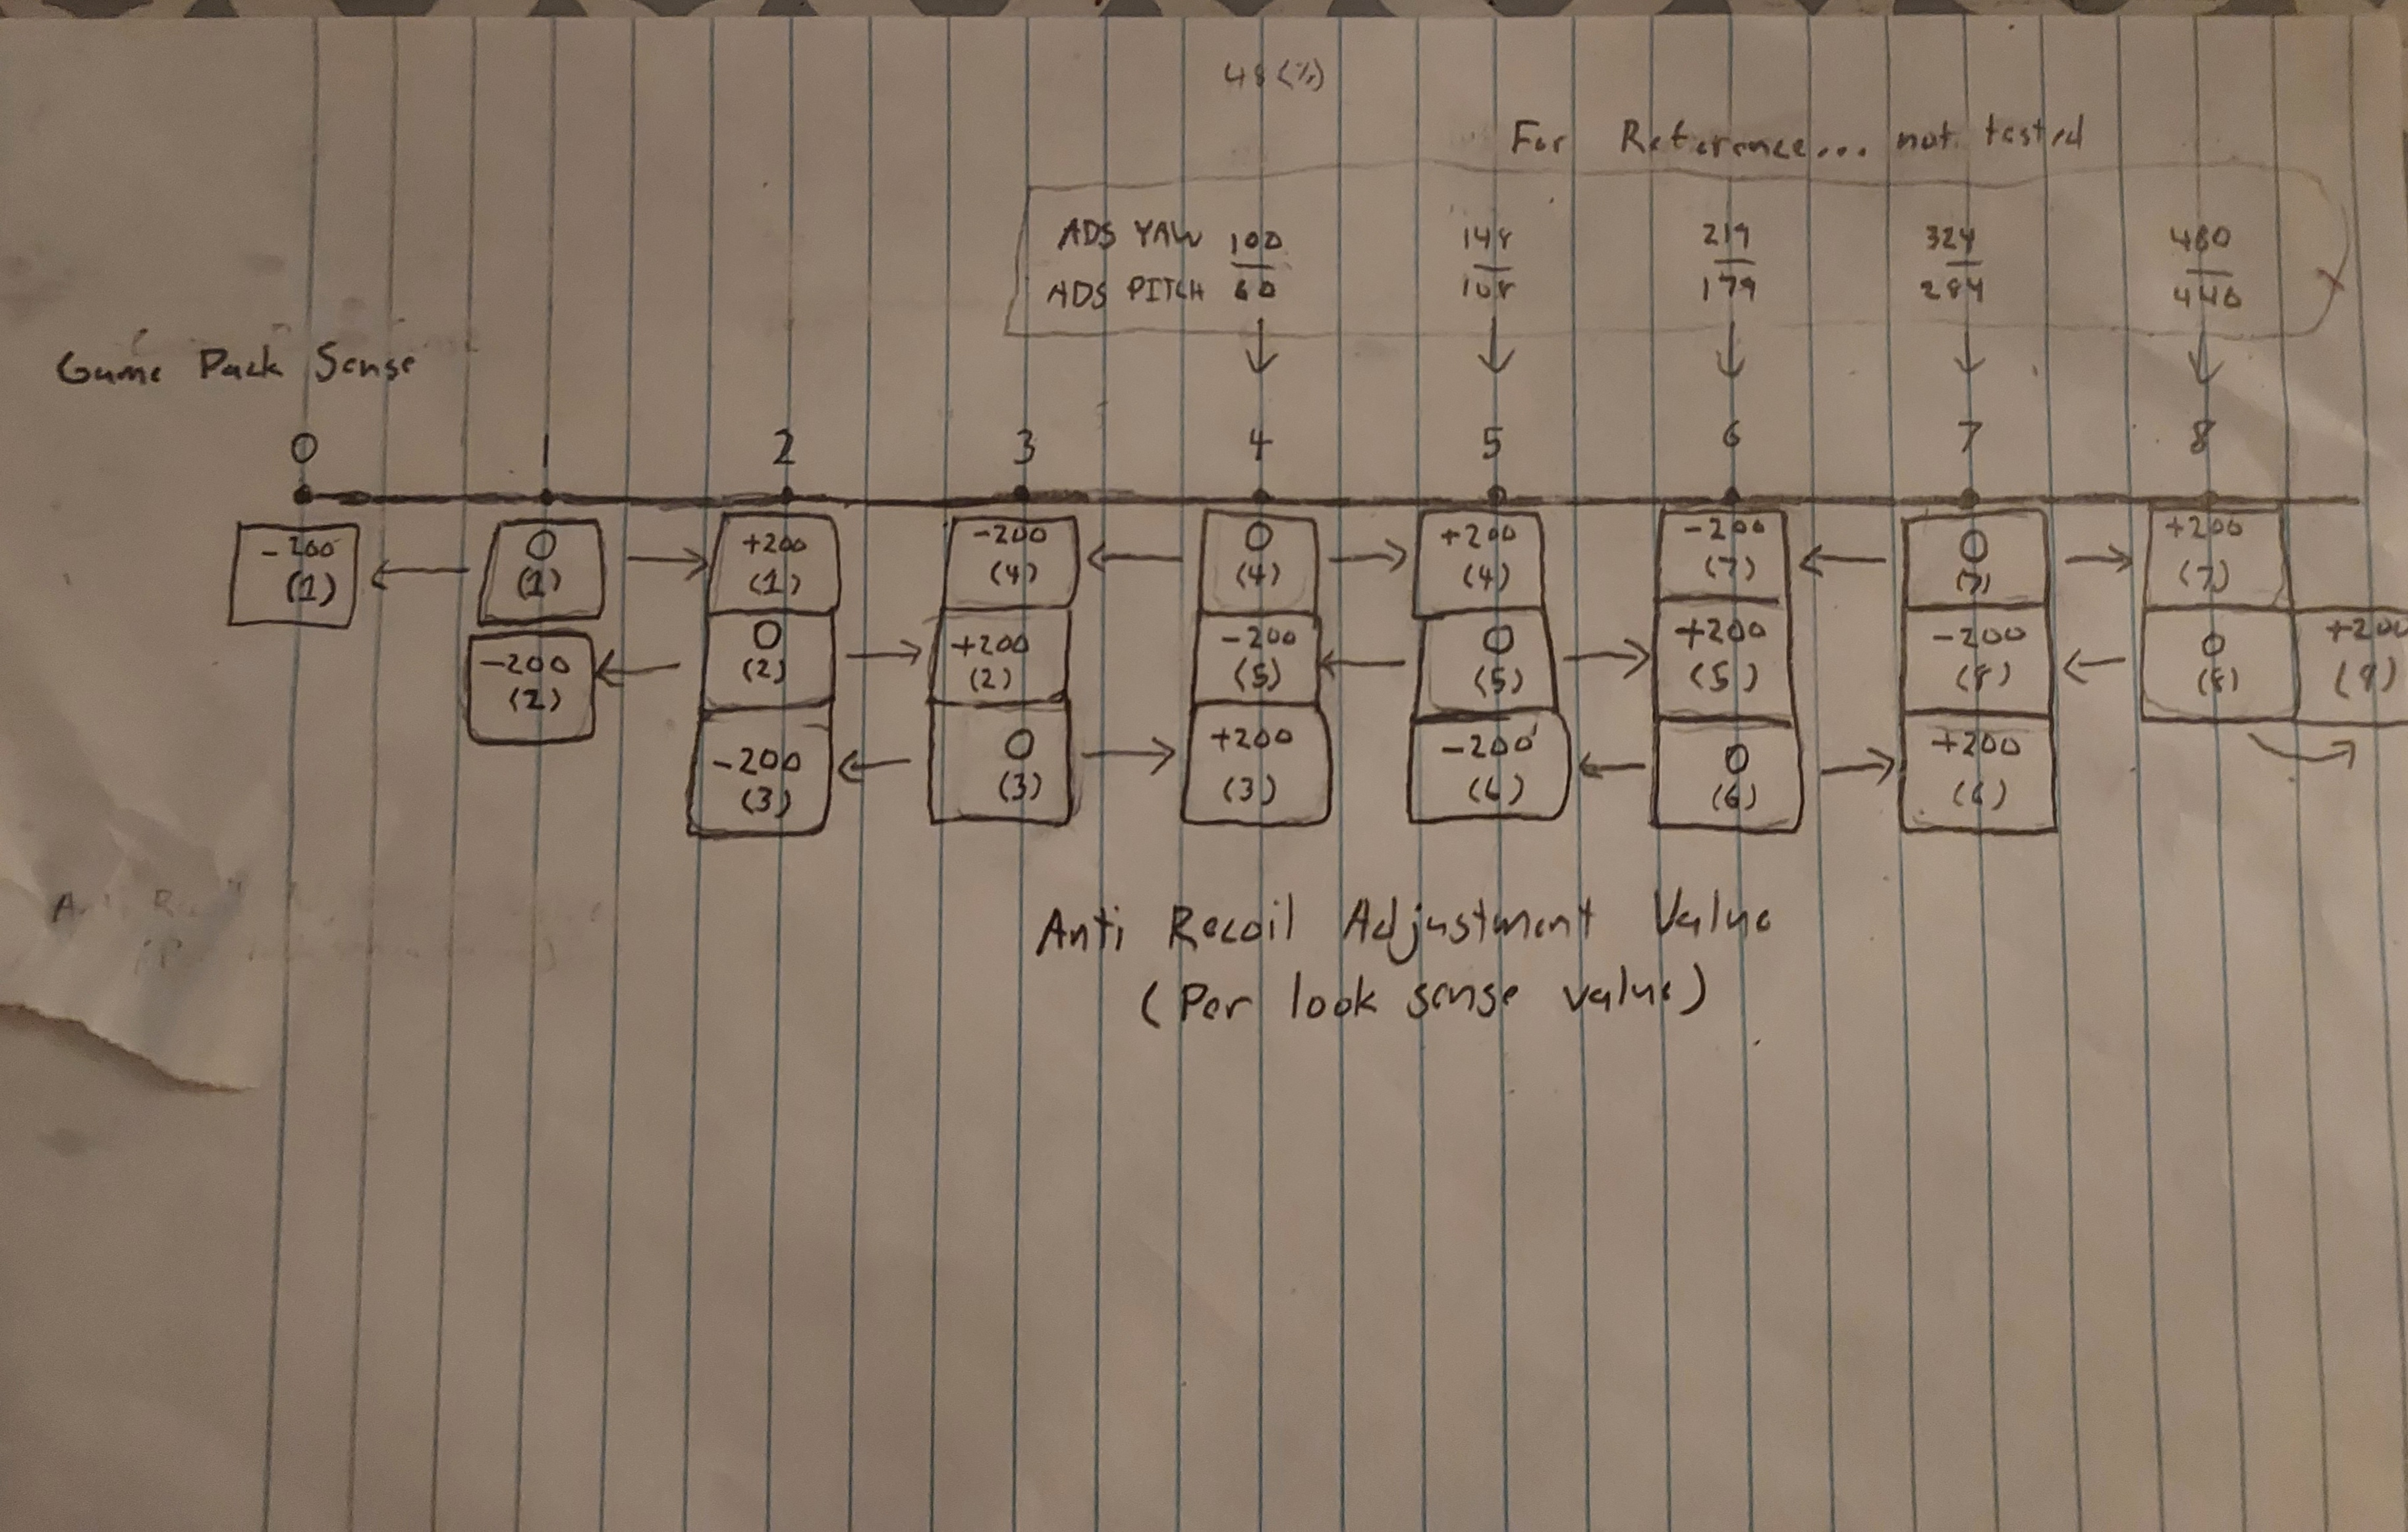 48 (%)
For Reference... not tested
ADS YAW 100 148 219 324 480
ADS PITCH 60 108 179 284 440
Game Pack Sense
0 1 2 3 4 5 6 7 8
-200 0 +200 -200 0 +200 -200 0 +200
(1) (1) (1) (4) (4) (4) (7) (7) (7)
-200 0 +200 -200 0 +200 -200 0 +200
(2) (2) (2) (5) (5) (5) (8) (8) (8)
-200 0 +200 -200 0 +200
(3) (3) (3) (6) (6) (6)
Anti Recoil Adjustment Value
(Per look sense value)